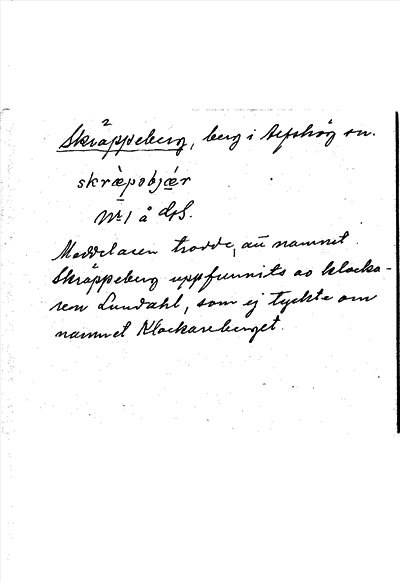 2
Skräppeberg, berg i Alfshög sn.
skræpəbjær
Nr 1 å
Meddelaren trodde, att namnet
Skräppeberg uppfunnits av klocka-
ren Lundahl, som ej tyckte om
namnet Klockareberget.